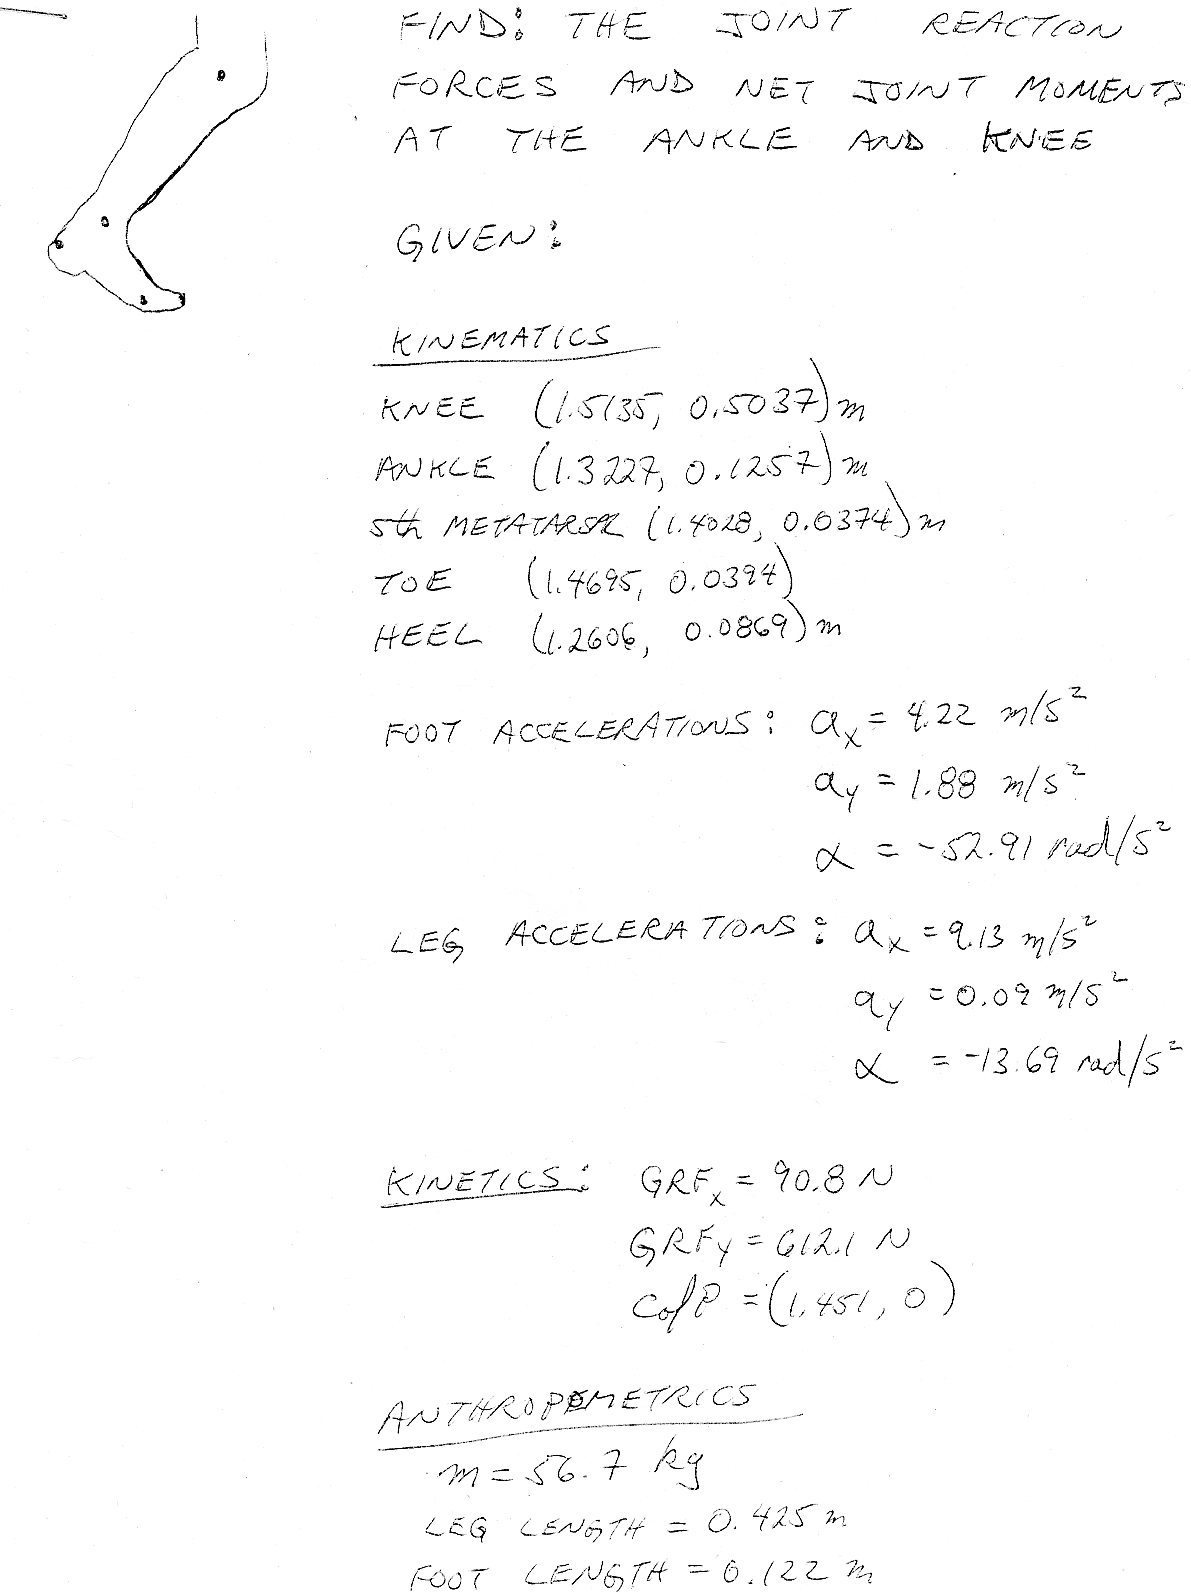 FIND: THE JOINT REACTION
FORCES AND NET JOINT MOMENTS
AT THE ANKLE AND KNEE
GIVEN:
KINEMATICS
KNEE (1.5135, 0.5037) m
ANKLE (1.3227, 0.1257) m
5th METATARSAL (1.4028, 0.0374) m
TOE (1.4695, 0.0394)
HEEL (1.2606, 0.0869) m
FOOT ACCELERATIONS: ax = 4.22 m/s²
ay = 1.88 m/s²
α = -52.91 rad/s²
LEG ACCELERATIONS: ax = 9.13 m/s²
ay = 0.09 m/s²
α = -13.69 rad/s²
KINETICS: GRFx = 90.8 N
GRFy = 612.1 N
CofP = (1.451, 0)
ANTHROPOMETRICS
m = 56.7 kg
LEG LENGTH = 0.425 m
FOOT LENGTH = 0.122 m